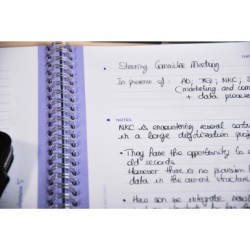 • Steering Committee Meeting
In presence of: AD; TKG; NKC; S
(marketing and com
+ data proces
NOTES
NKC is encountering several
in a large digitization proj
• They have the opportunity to e
old records
However there is no provision
data in the current structure
• How can be integrate